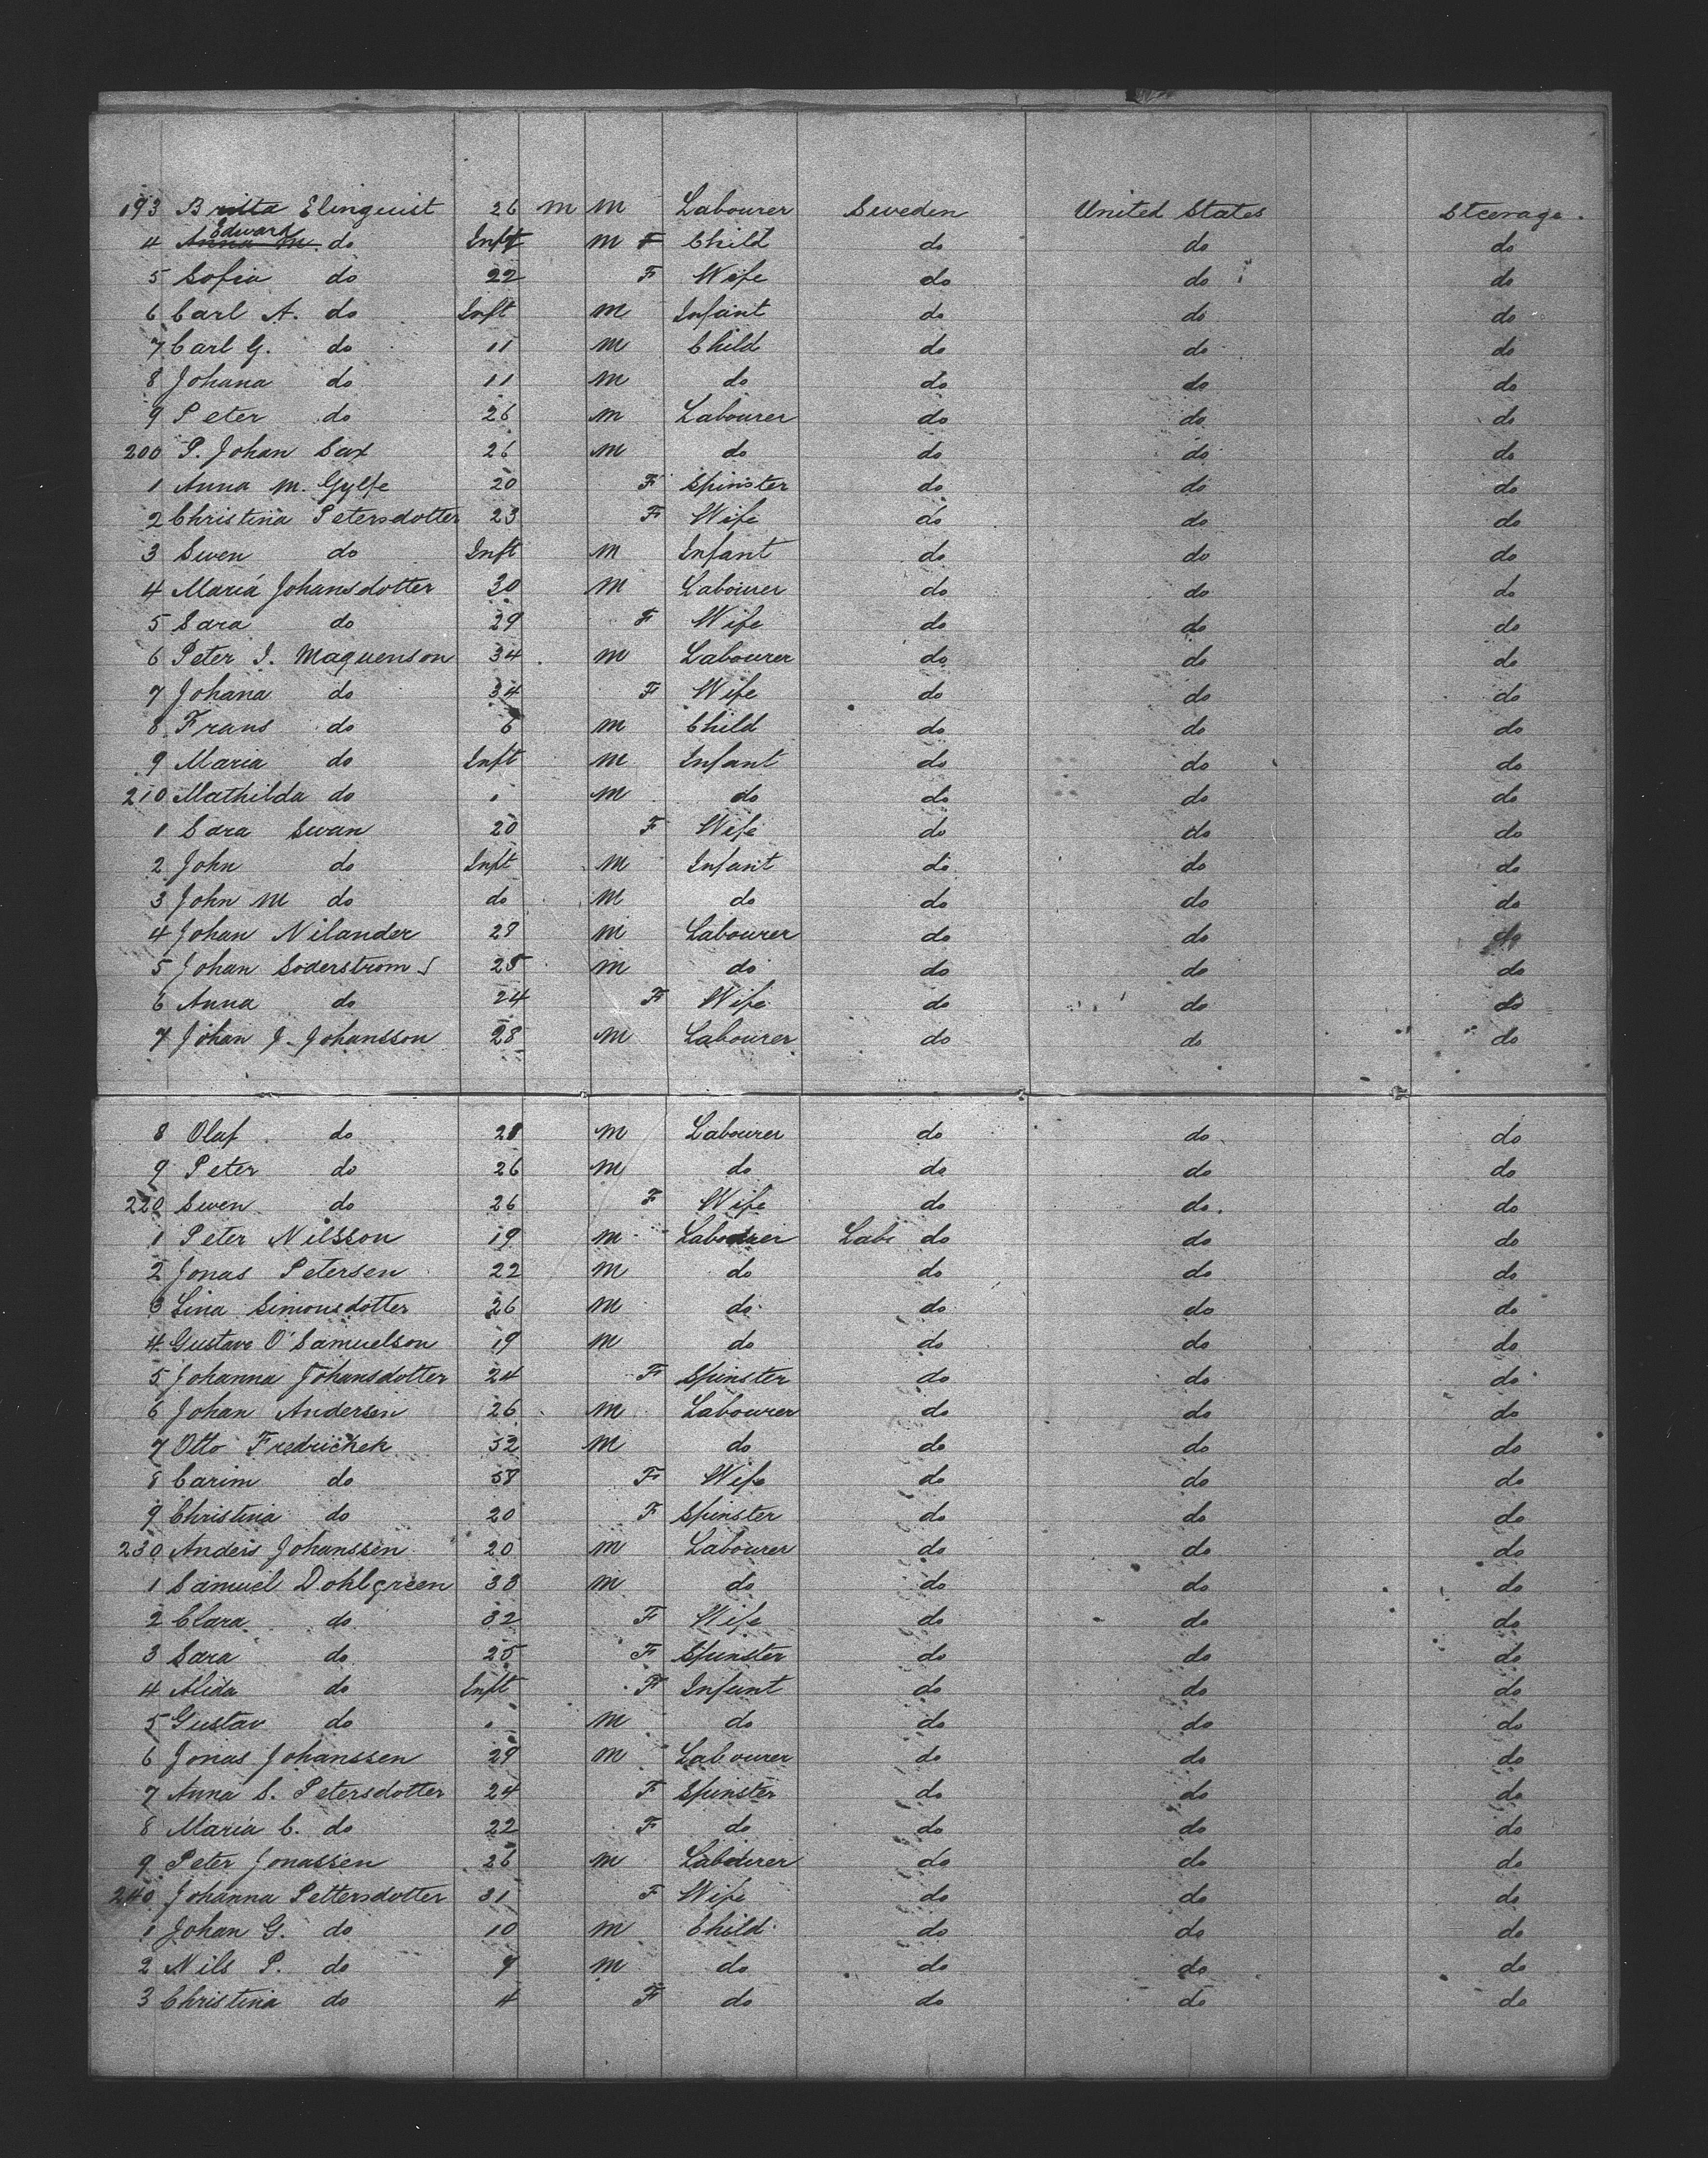 193 Britta Elinquist 26 M M Labourer Sweden United States Steerage.
Edward
4 Anna M. do Inft M F Child do do do
5 Sofia do 22 F Wife do do do
6 Carl A. do Inft M Infant do do do
7 Carl G. do 11 M Child do do do
8 Johana do 11 M do do do do
9 Peter do 26 M Labourer do do do
200 P. Johan Sax 26 M do do do do
1 Anna M. Gylfe 20 F Spinster do do do
2 Christina Petersdotter 23 F Wife do do do
3 Swen do Inft M Infant do do do
4 Maria Johansdotter 30 M Labourer do do do
5 Sara do 29 F Wife do do do
6 Peter J. Maquenson 34 M Labourer do do do
7 Johana do 34 F Wife do do do
8 Frans do 6 M Child do do do
9 Maria do Inft M Infant do do do
210 Mathilda do " M do do do do
1 Sara Swan 20 F Wife do do do
2 John do Inft M Infant do do do
3 John M do do M do do do do
4 Johan Nilander 28 M Labourer do do do
5 Johan Soderstrom 25 M do do do do
6 Anna do 24 F Wife do do do
7 Johan J. Johansson 28 M Labourer do do do
8 Olaf do 28 M Labourer do do do
9 Peter do 26 M do do do do
220 Swen do 26 F Wife do do do
1 Peter Nilsson 19 M Labourer Labr do do do
2 Jonas Petersen 22 M do do do do
3 Lina Simonsdotter 26 M do do do do
4 Gustave O Samuelson 19 M do do do do
5 Johanna Johansdotter 24 F Spinster do do do
6 Johan Andersen 26 M Labourer do do do
7 Otto Fredrichek 52 M do do do do
8 Carim do 58 F Wife do do do
9 Christina do 20 F Spinster do do do
230 Anders Johanssen 20 M Labourer do do do
1 Samuel Dohlgreen 33 M do do do do
2 Clara do 32 F Wife do do do
3 Sara do 25 F Spinster do do do
4 Alida do Inft F Infant do do do
5 Gustav do " M do do do do
6 Jonas Johanssen 29 M Labourer do do do
7 Anna S. Petersdotter 24 F Spinster do do do
8 Maria C. do 22 F do do do do
9 Peter Jonassen 26 M Labourer do do do
240 Johanna Pettersdotter 31 F Wife do do do
1 Johan G. do 10 M Child do do do
2 Nils P. do 9 M do do do do
3 Christina do 4 F do do do do